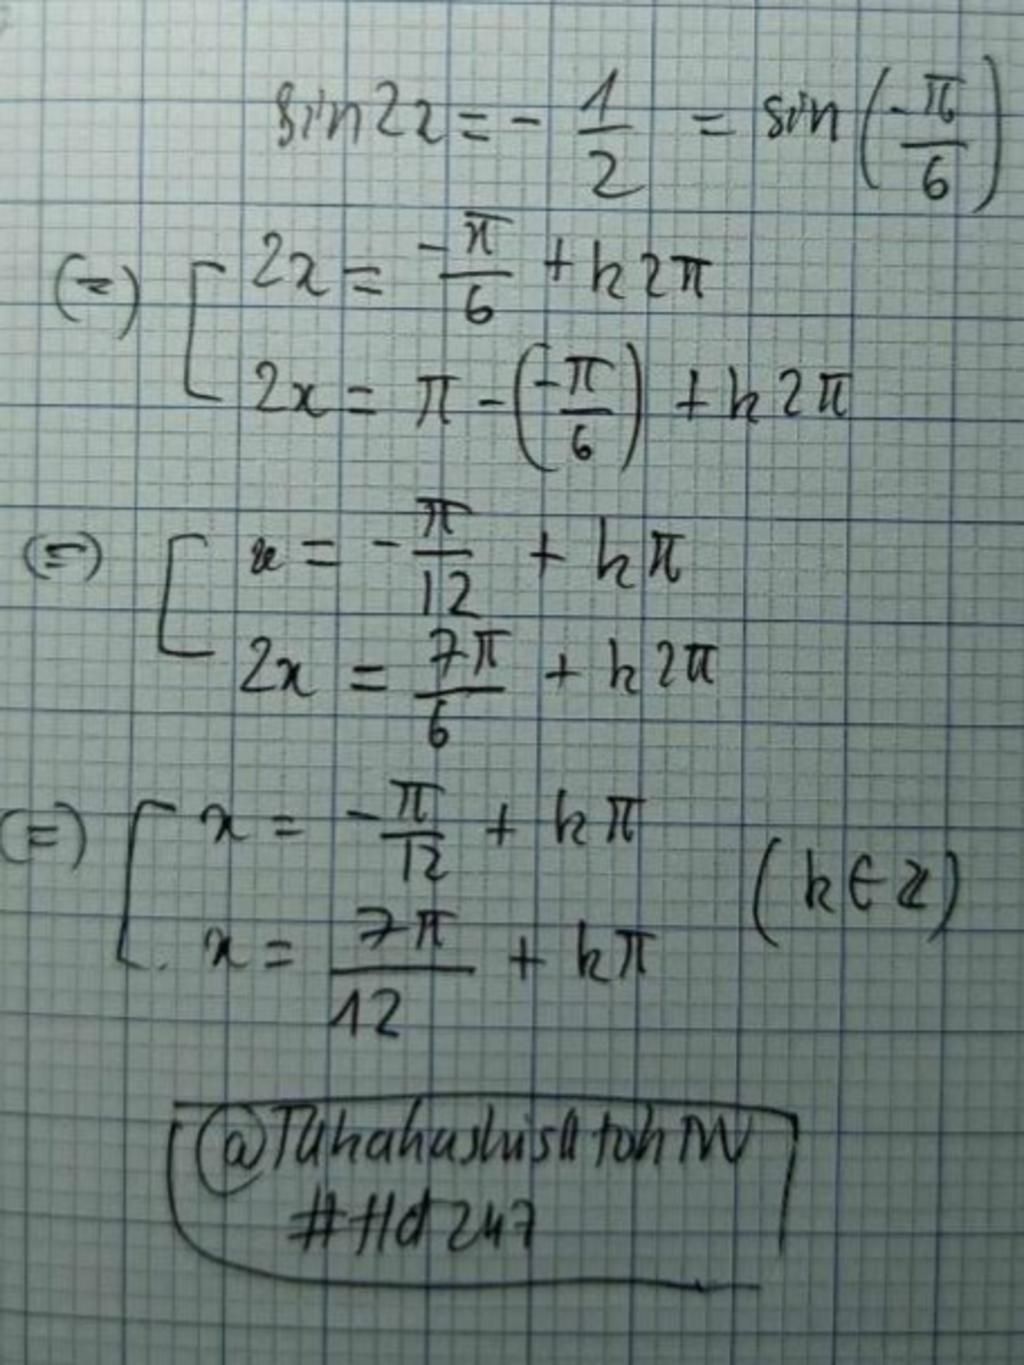 sin2x = - 1/2 = sin(-π/6)
(=) [ 2x = -π/6 + k2π
2x = π - (-π/6) + k2π
(=) [ x = -π/12 + kπ
2x = 7π/6 + k2π
(=) [ x = -π/12 + kπ
x = 7π/12 + kπ (k∈Z)
#Hd247